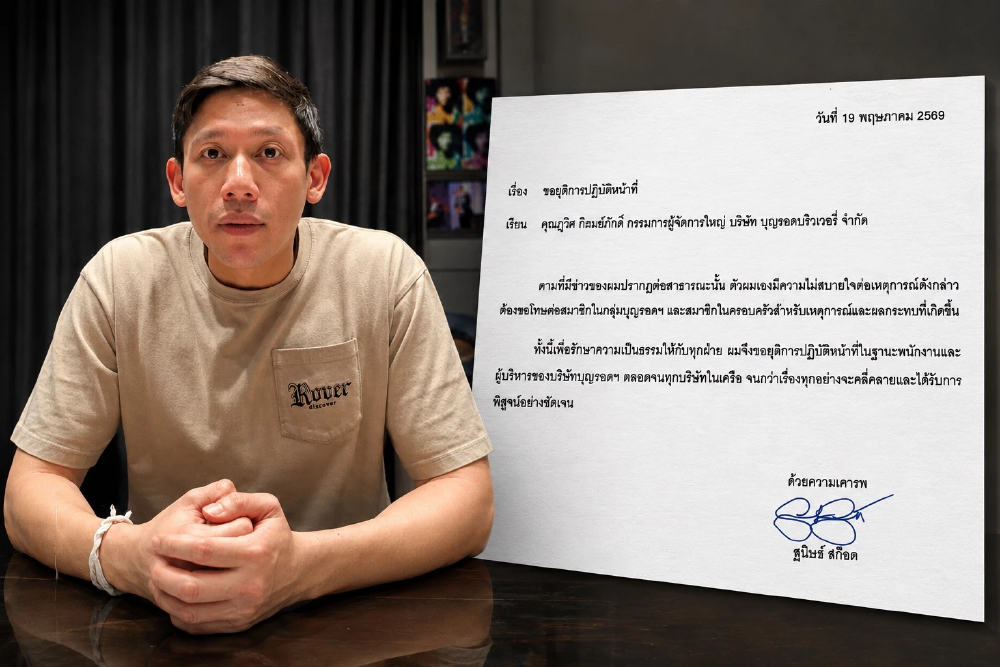 Rover
discover
วันที่ 19 พฤษภาคม 2569
เรื่อง ขอยุติการปฏิบัติหน้าที่
เรียน คุณภูวิศ กิฬมย์ภักดิ์ กรรมการผู้จัดการใหญ่ บริษัท บุญรอดบริวเวอรี่ จำกัด
ตามที่มีข่าวของผมปรากฏต่อสาธารณะนั้น ตัวผมเองมีความไม่สบายใจต่อเหตุการณ์ดังกล่าว
ต้องขอโทษต่อสมาชิกในกลุ่มบุญรอดฯ และสมาชิกในครอบครัวสำหรับเหตุการณ์และผลกระทบที่เกิดขึ้น
ทั้งนี้เพื่อรักษาความเป็นธรรมให้กับทุกฝ่าย ผมจึงขอยุติการปฏิบัติหน้าที่ในฐานะพนักงานและ
ผู้บริหารของบริษัทบุญรอดฯ ตลอดจนทุกบริษัทในเครือ จนกว่าเรื่องทุกอย่างจะคลี่คลายและได้รับการ
พิสูจน์อย่างชัดเจน
ด้วยความเคารพ
สุนิษฐ์ สก๊อต